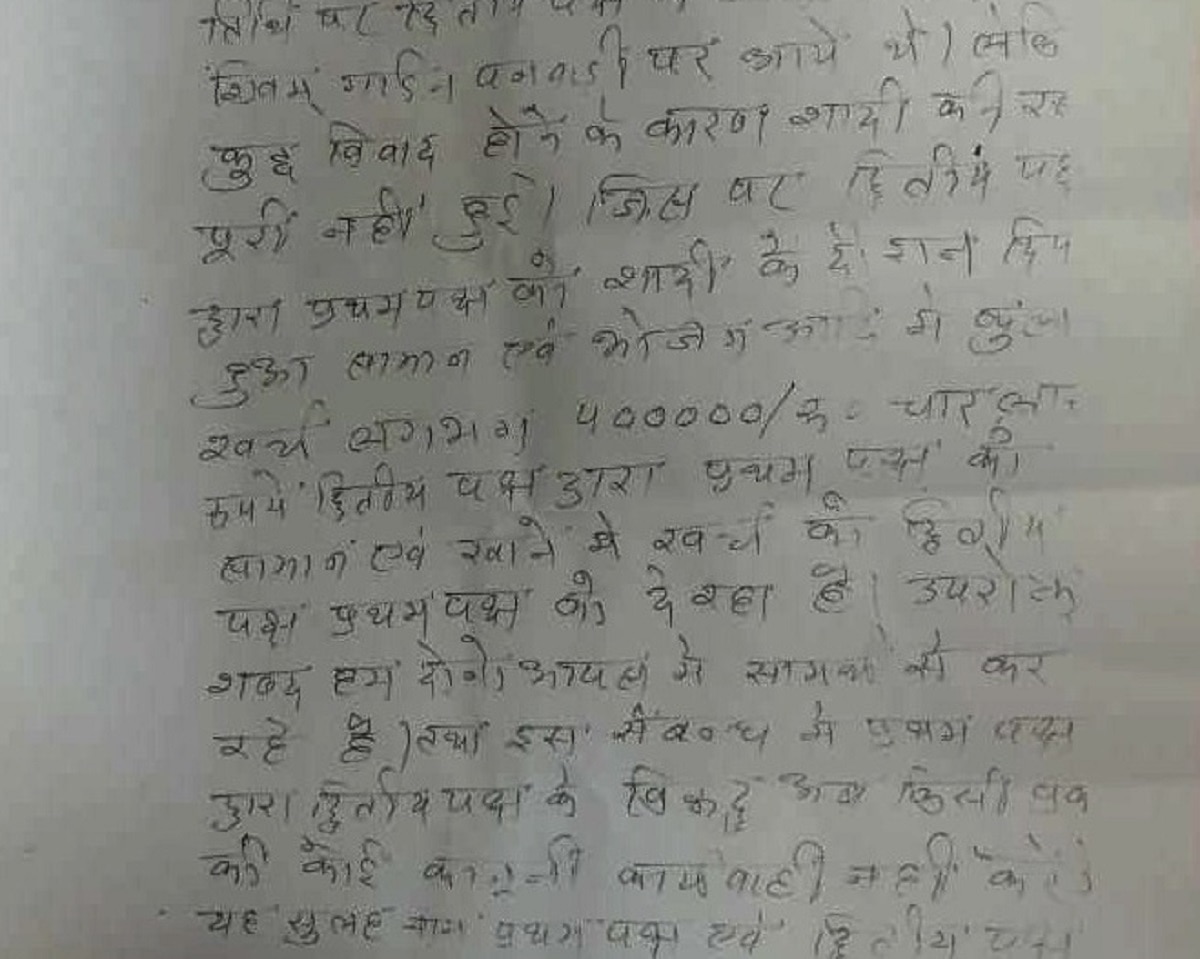 तिथि पर द्वितीय पक्ष
शिवम् गार्डन पर आये थे। लेकि
कुछ विवाद होने के कारण शादी की रस
पूरी नहीं हुई। जिस पर द्वितीय पक्ष
द्वारा प्रथम पक्ष को शादी के दौरान दिया
हुआ सामान एवं भोजन आदि में कुल
खर्च लगभग 400000/रु० चार ला
रुपये द्वितीय पक्ष द्वारा प्रथम पक्ष की
सामान एवं खाने में खर्च को द्वितीय
पक्ष प्रथम पक्ष को दे रहा है। उपरोक्त
शब्द हम दोनों आपस में कर
रहे है। तथा इस संबन्ध में प्रथम पक्ष
द्वारा द्वितीय पक्ष के विरूद्ध अब किसी
की कोई कानूनी कार्यवाही नहीं करेंगे
यह सुलह प्रथम पक्ष एवं द्वितीय पक्ष